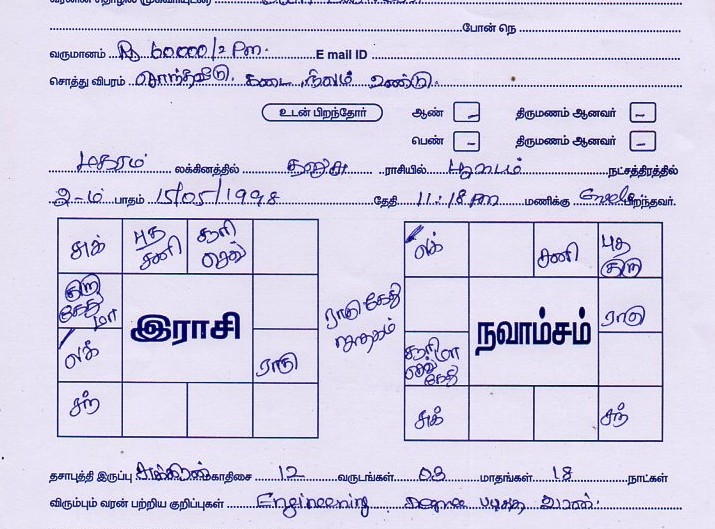 போன் நெ
வருமானம் Rs 60000/2 Pm. E mail ID
சொத்து விபரம் சொந்தவீடு. கடை, நிலம் உண்டு.
உடன் பிறந்தோர் ஆண் - திருமணம் ஆனவர் -
பெண் - திருமணம் ஆனவர் -
மகரம் லக்கினத்தில் தனுசு ராசியில் பூராடம் நட்சத்திரத்தில்
2-ம் பாதம் 15/05/1998 தேதி 11:18 PM மணிக்கு பிறந்தவர்.
சுக் புத சனி சூரி செவ்
குரு கேது மா
இராசி
ராகு கேது ஜாதகம்
லக் ராகு
சந்
லக் சனி புத குரு
நவாம்சம்
ராகு
சூரி மா செவ் கேது
சுக் சந்
தசாபுத்தி இருப்பு சுக்கிரன் மகாதிசை 12 வருடங்கள் 03 மாதங்கள் 18 நாட்கள்
விரும்பும் வரன் பற்றிய குறிப்புகள் Engineering